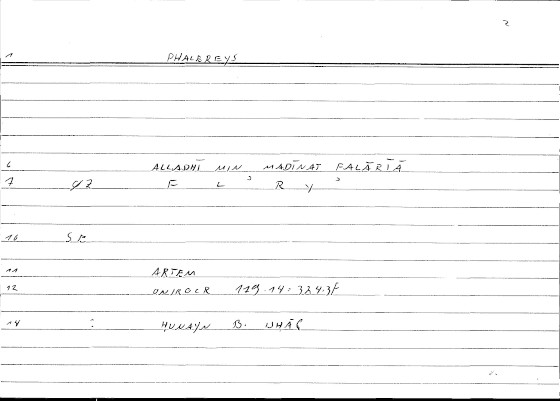 2
1 PHALEREYS
6 ALLADHĪ MIN MADĪNAT FALĀRĪĀ
7 F L ʾ R Y ʾ
10 SP
11 ARTEM
12 ONIROCR 119.14:
14 : HUNAYN B. ISHĀQ